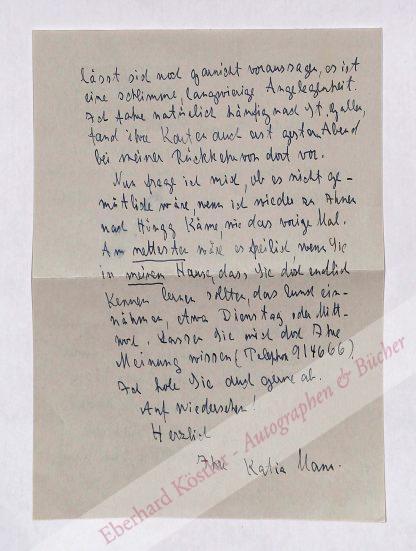 lässt sich noch garnicht voraussagen, es ist
eine schlimme, langwierige Angelegenheit.
Ich fahre natürlich ständig nach St. Gallen,
fand Ihre Karten auch erst gestern Abend
bei meiner Rückkehr von dort vor.
Nun frage ich mich, ob es nicht ge-
mütlicher wäre, wenn ich wieder zu Ihnen
nach Höngg käme, wie das vorige Mal.
Am nettesten wäre es freilich wenn Sie
in meinem Hause, dass Sie doch endlich
kennen lernen sollten, das Lunch ein-
nähmen, etwa Dienstag oder Mitt-
woch. Lassen Sie mich doch Ihre
Meinung wissen (Telephon 914666).
Ich hole Sie auch gerne ab.
Auf Wiedersehen!
Herzlich
Ihre Katia Mann.
Eberhard Köstler - Autographen & Bücher